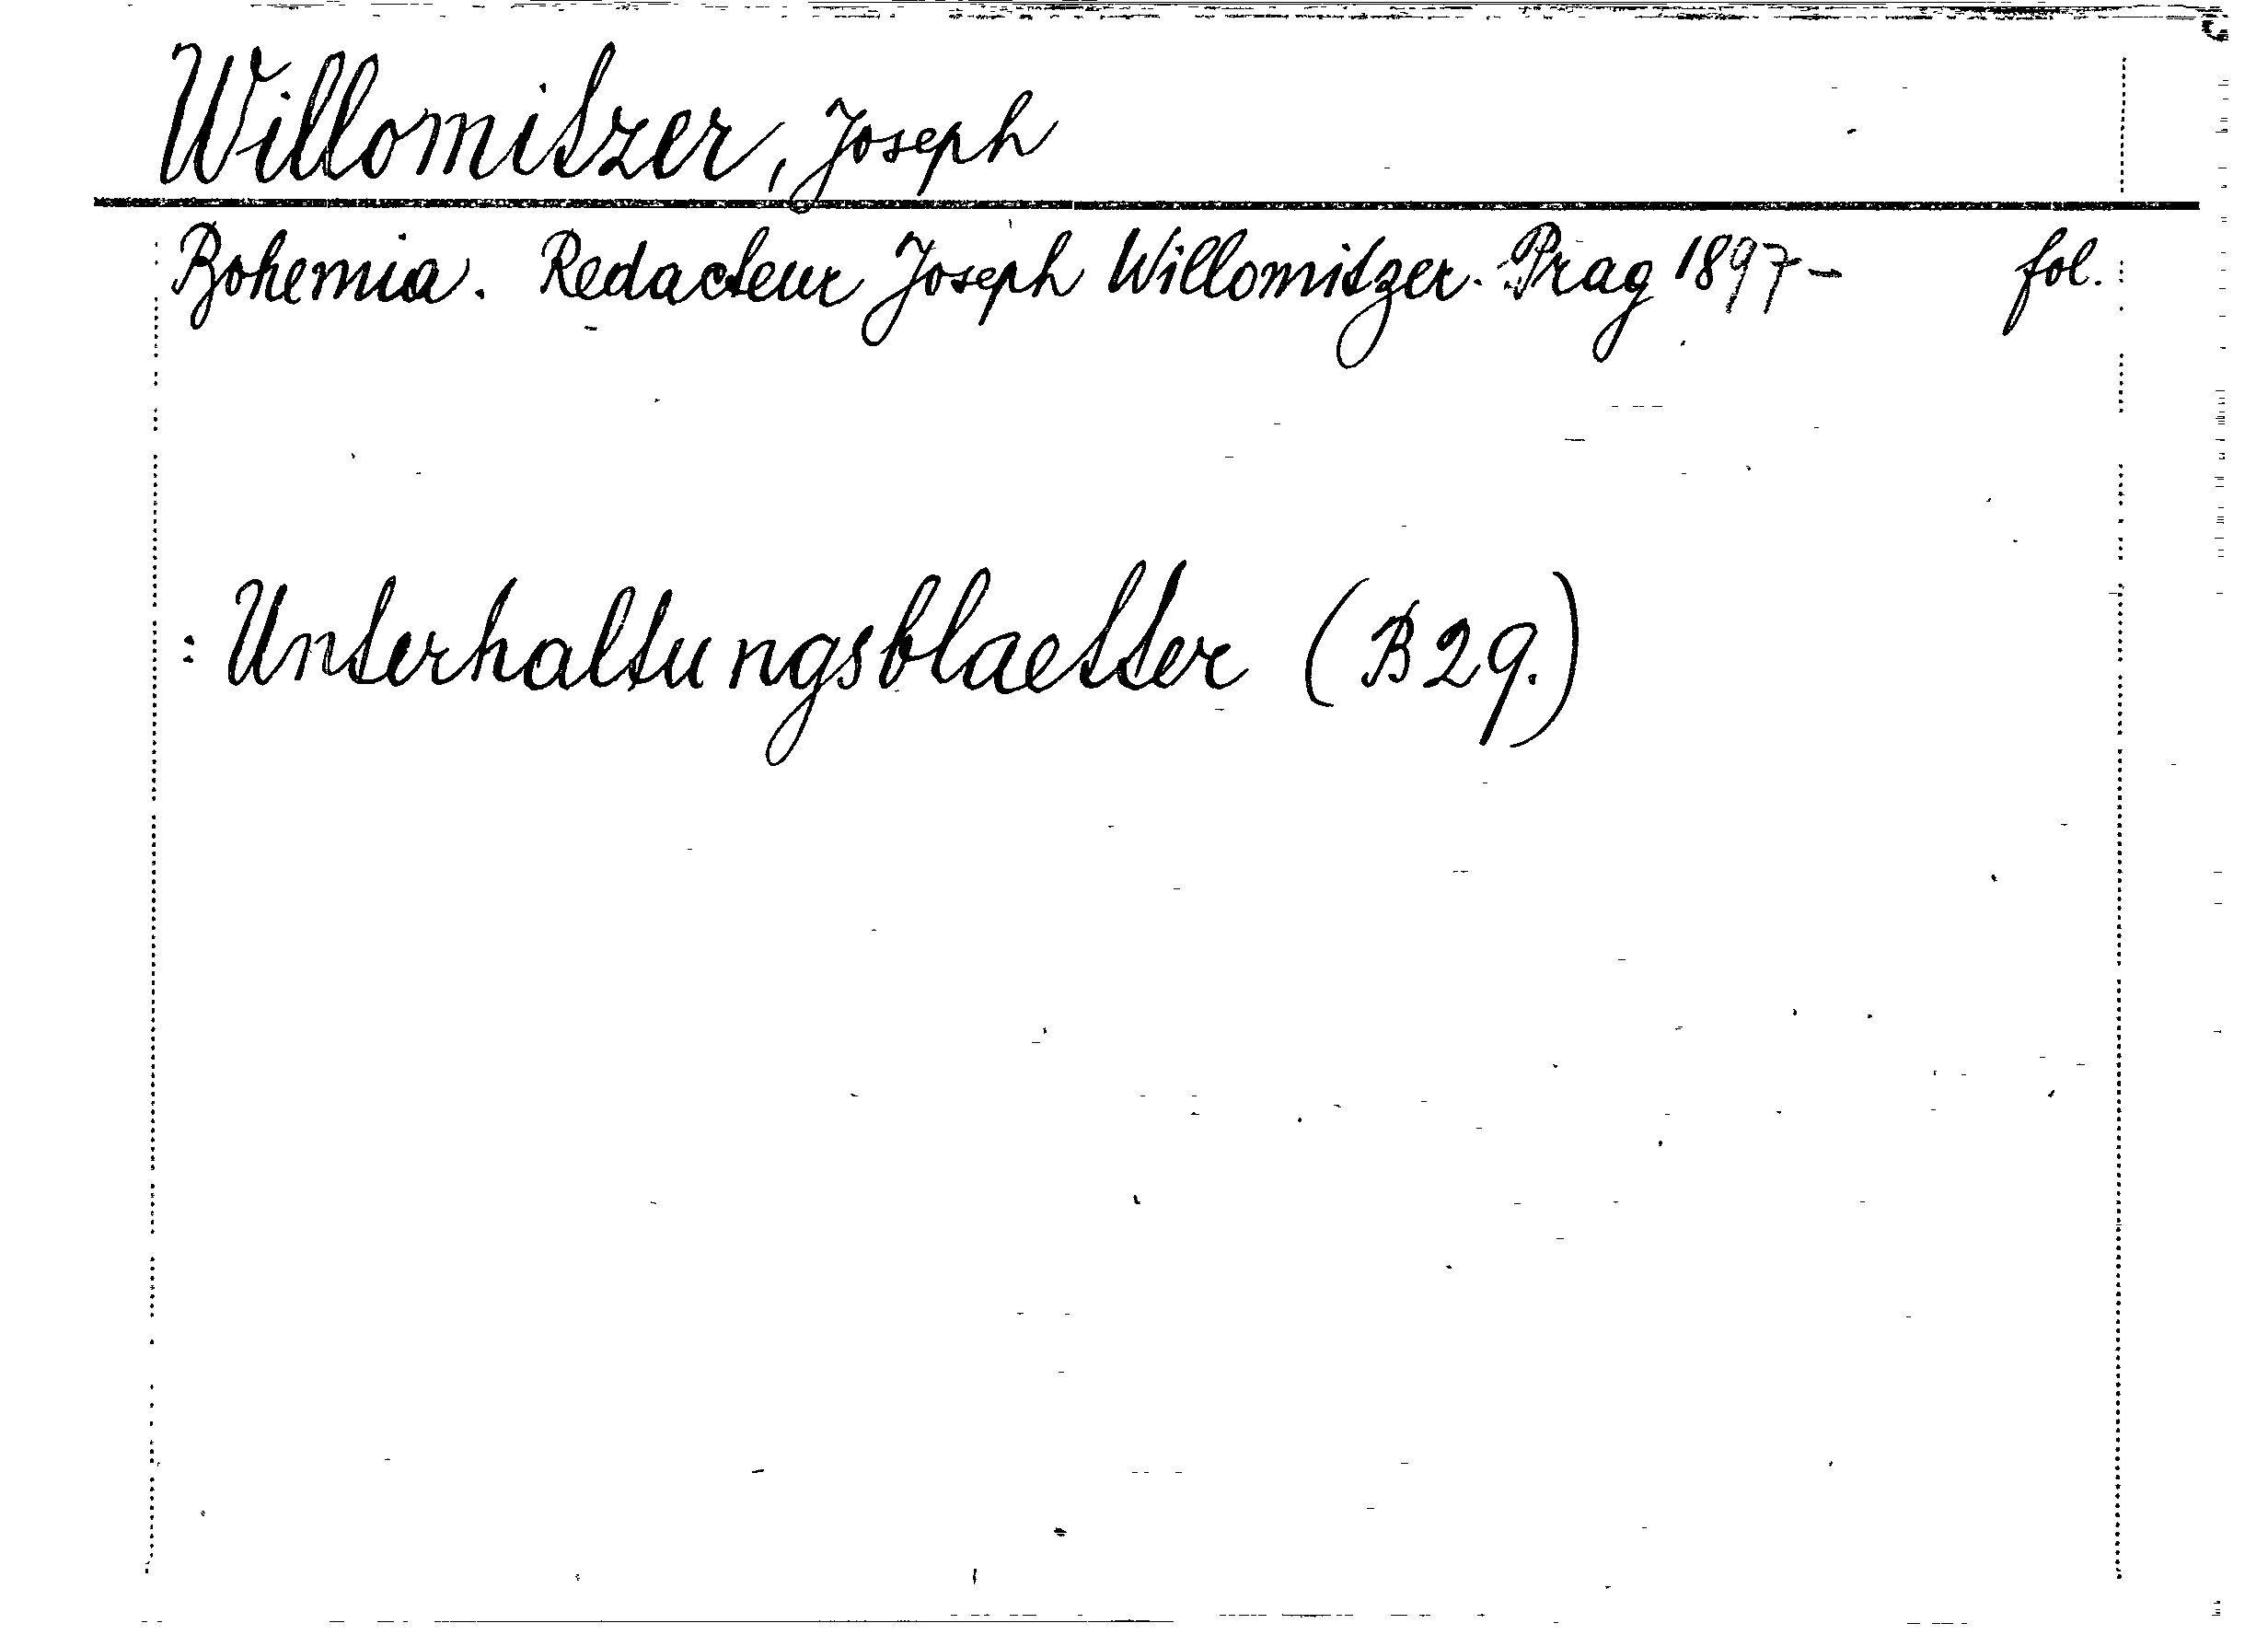 Willomitzer, Joseph
Bohemia. Redacteur Joseph Willomitzer. Prag 1897- fol.
: Unterhaltungsblaetter (B 29.)